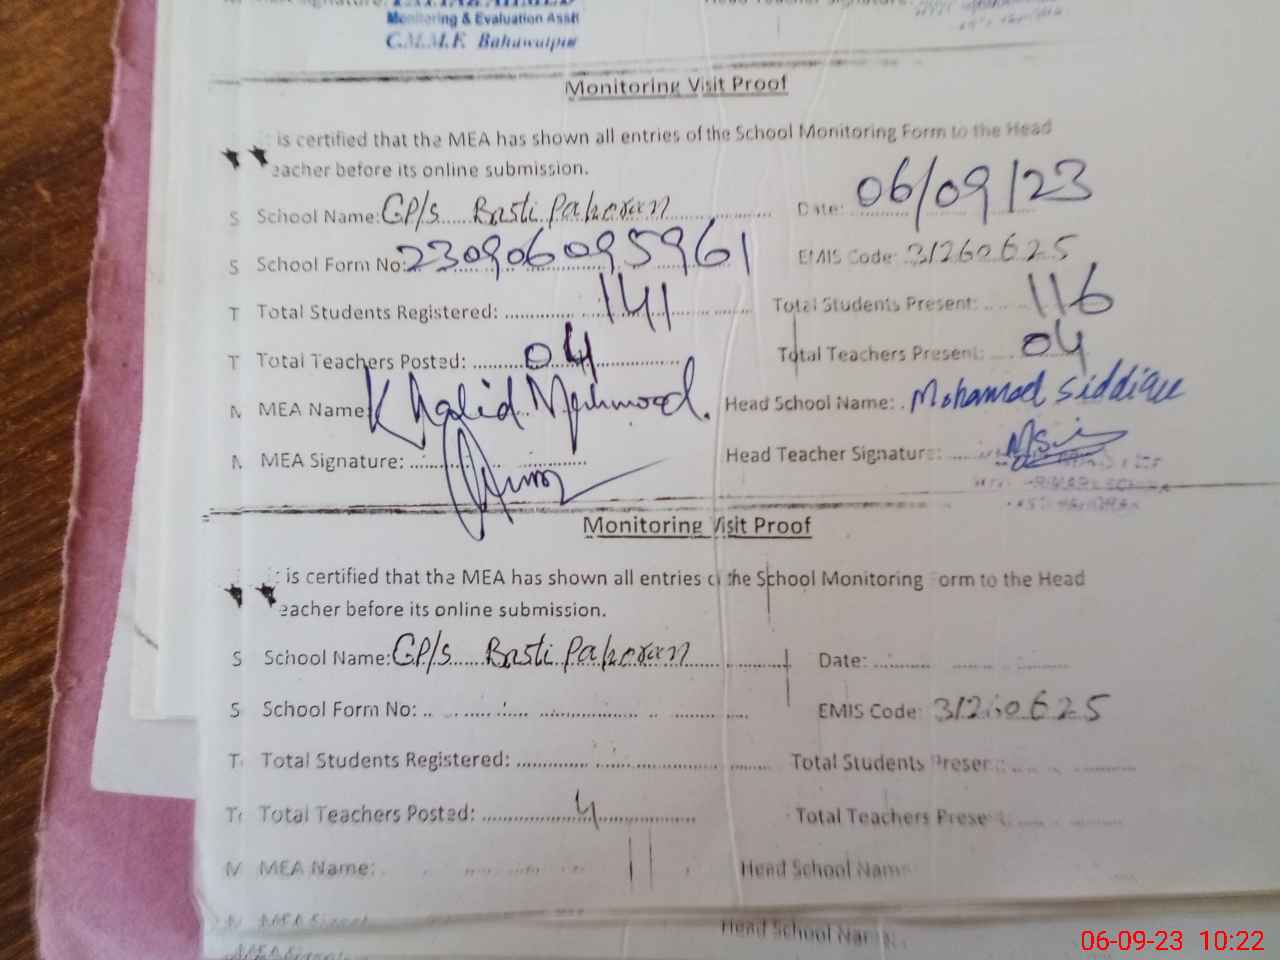 Monitoring & Evaluation Asstt
C.M.M.F. Bahawalpur
Monitoring Visit Proof
is certified that the MEA has shown all entries of the School Monitoring Form to the Head
eacher before its online submission.
S School Name: GP/s Basti Pakoran Date: 06/09/23
S School Form No: 230906095961 EMIS Code: 31260625
T Total Students Registered: 141 Total Students Present: 116
T Total Teachers Posted: 04 Total Teachers Present: 04
MEA Name: Khalid Mehmood. Head School Name: Mohammad Siddique
MEA Signature: Head Teacher Signature:
Monitoring Visit Proof
is certified that the MEA has shown all entries of the School Monitoring Form to the Head
eacher before its online submission.
S School Name: GP/s Basti Pakoran Date:
S School Form No: EMIS Code: 31260625
T Total Students Registered: Total Students Present:
T Total Teachers Posted: 4 Total Teachers Present:
M MEA Name: Head School Name
Head School Name
06-09-23 10:22